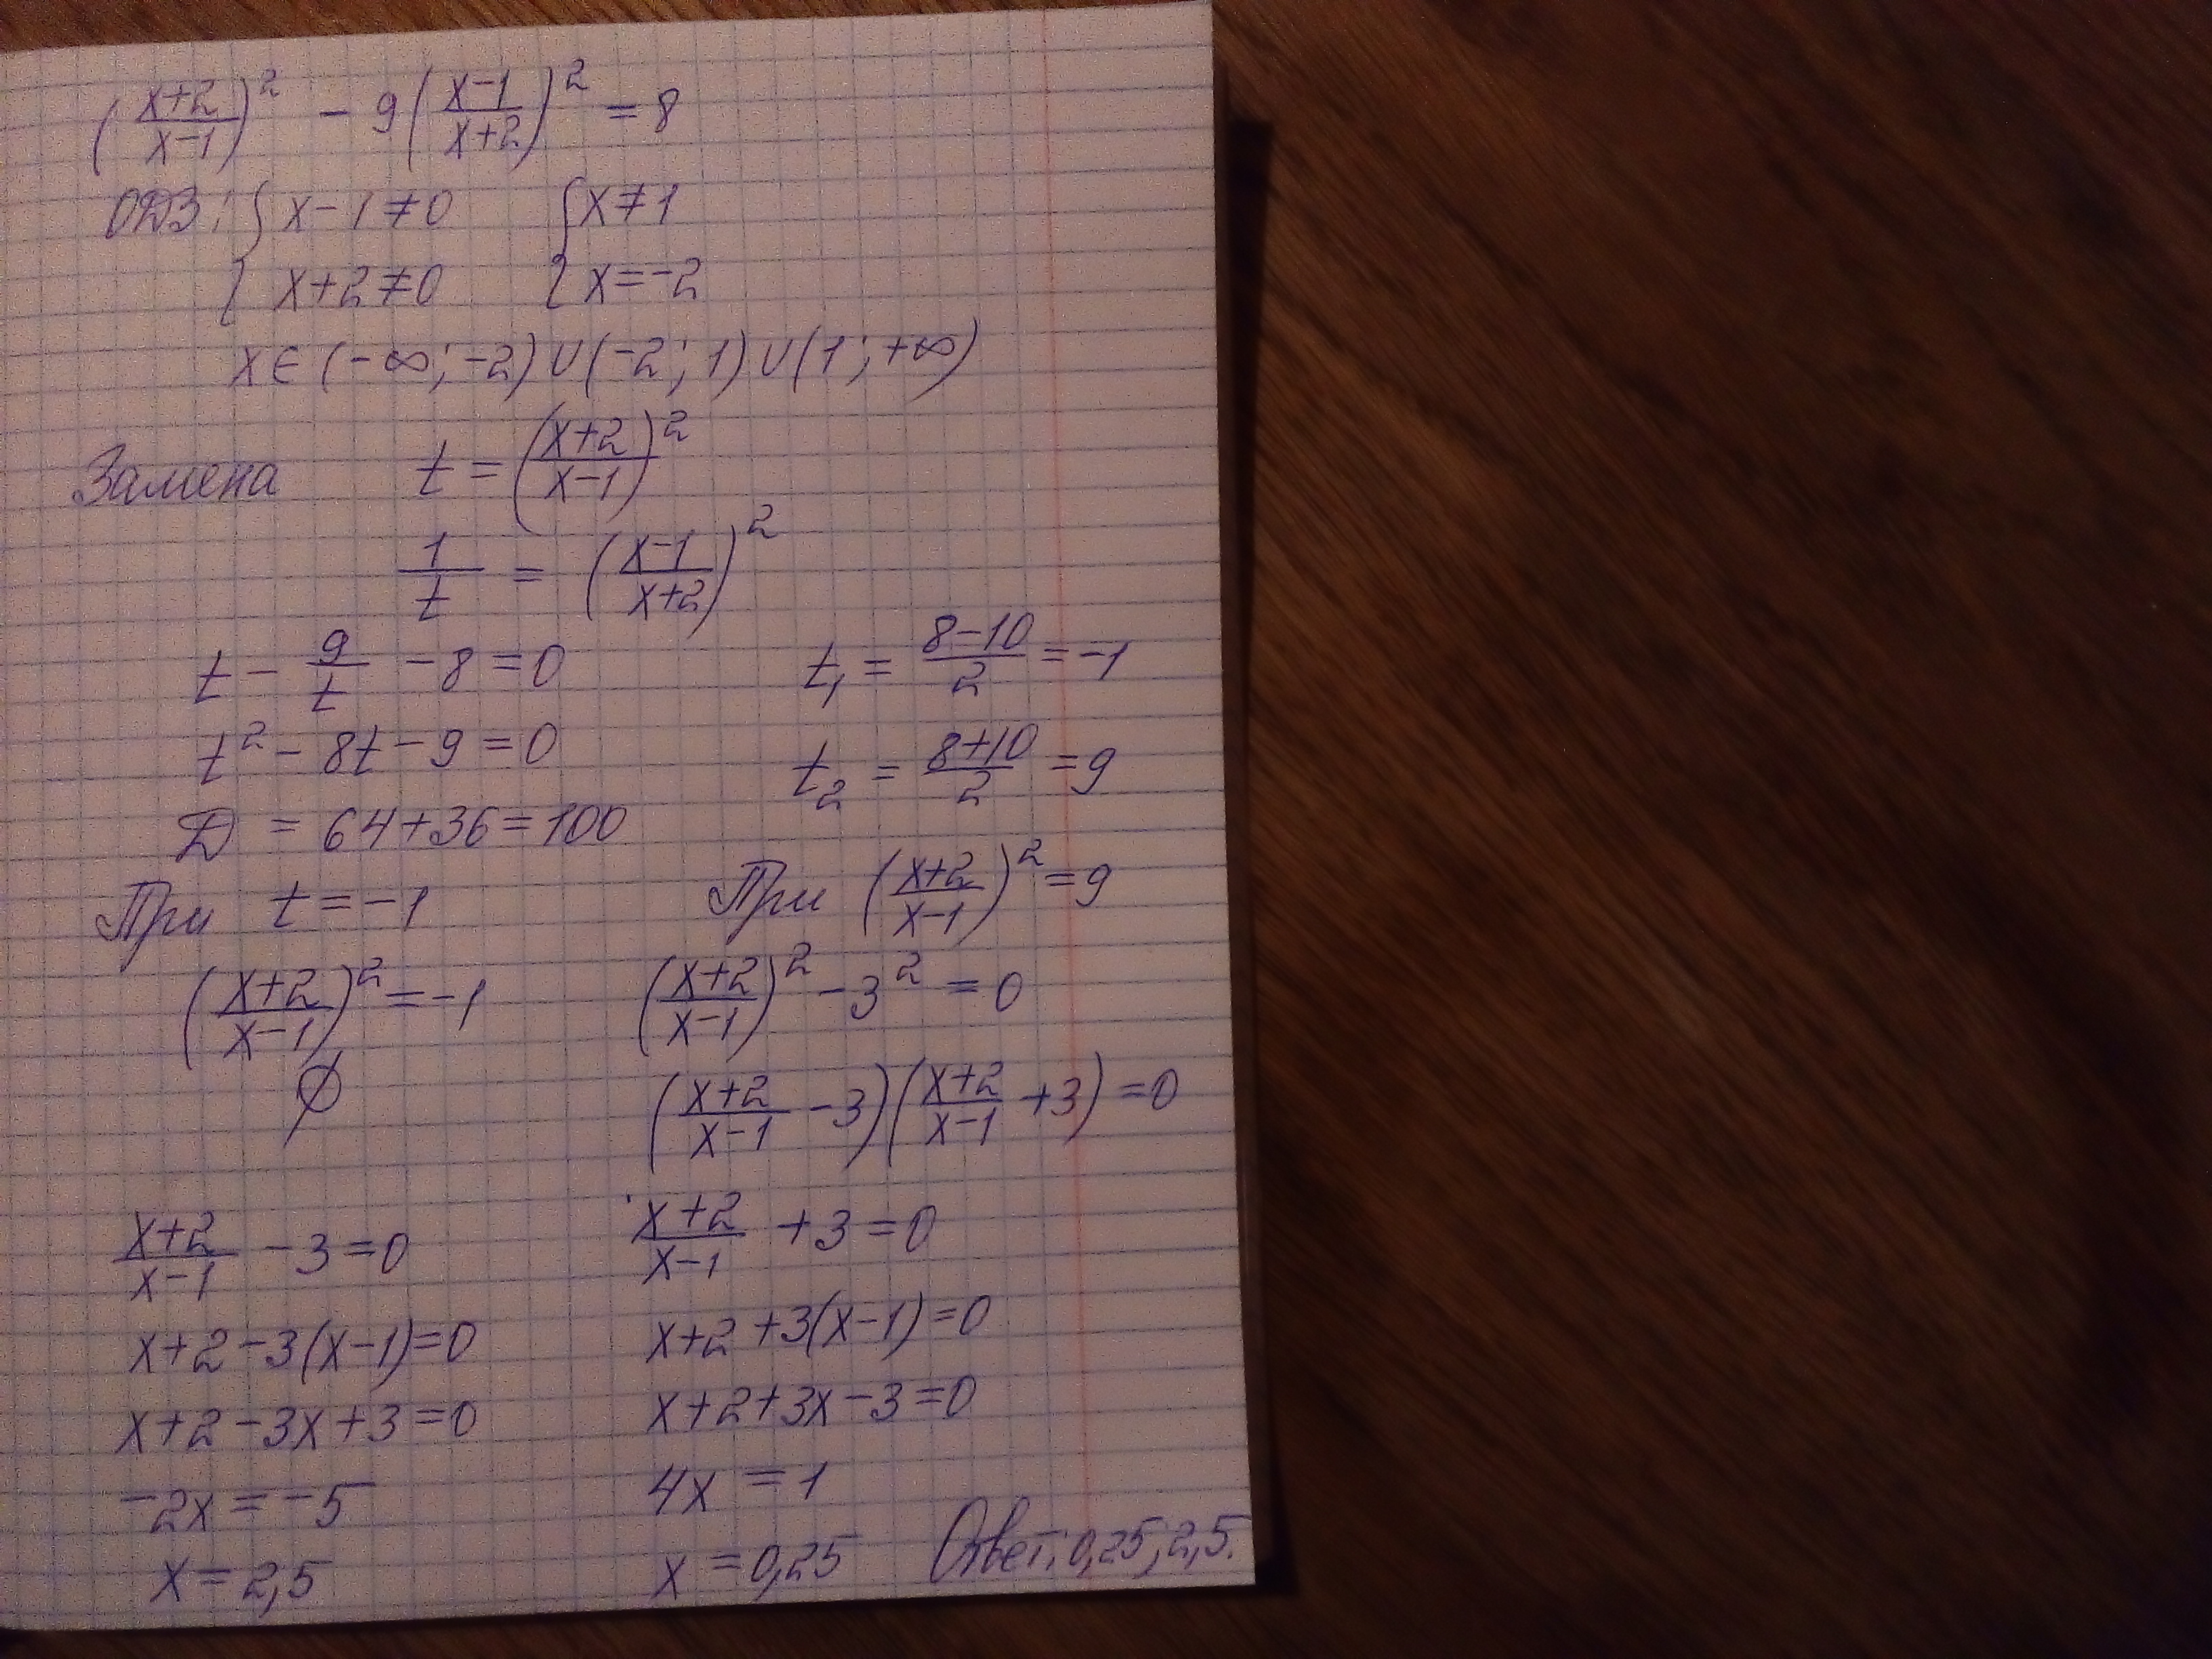 (\frac{x+2}{x-1})^2 - 9(\frac{x-1}{x+2})^2 = 8
ОДЗ: { x-1≠0 { x≠1
{ x+2≠0 { x=-2
x∈(-∞;-2)∪(-2;1)∪(1;+∞)
Замена t = (\frac{x+2}{x-1})^2
\frac{1}{t} = (\frac{x-1}{x+2})^2
t - \frac{9}{t} - 8 = 0
t^2 - 8t - 9 = 0
Д = 64+36=100
t_1 = \frac{8-10}{2} = -1
t_2 = \frac{8+10}{2} = 9
При t = -1
(\frac{x+2}{x-1})^2 = -1
∅
При (\frac{x+2}{x-1})^2 = 9
(\frac{x+2}{x-1})^2 - 3^2 = 0
(\frac{x+2}{x-1} - 3)(\frac{x+2}{x-1} + 3) = 0
\frac{x+2}{x-1} - 3 = 0
x+2-3(x-1)=0
x+2-3x+3=0
-2x = -5
x = 2,5
\frac{x+2}{x-1} + 3 = 0
x+2+3(x-1)=0
x+2+3x-3=0
4x = 1
x = 0,25
Ответ: 0,25; 2,5.